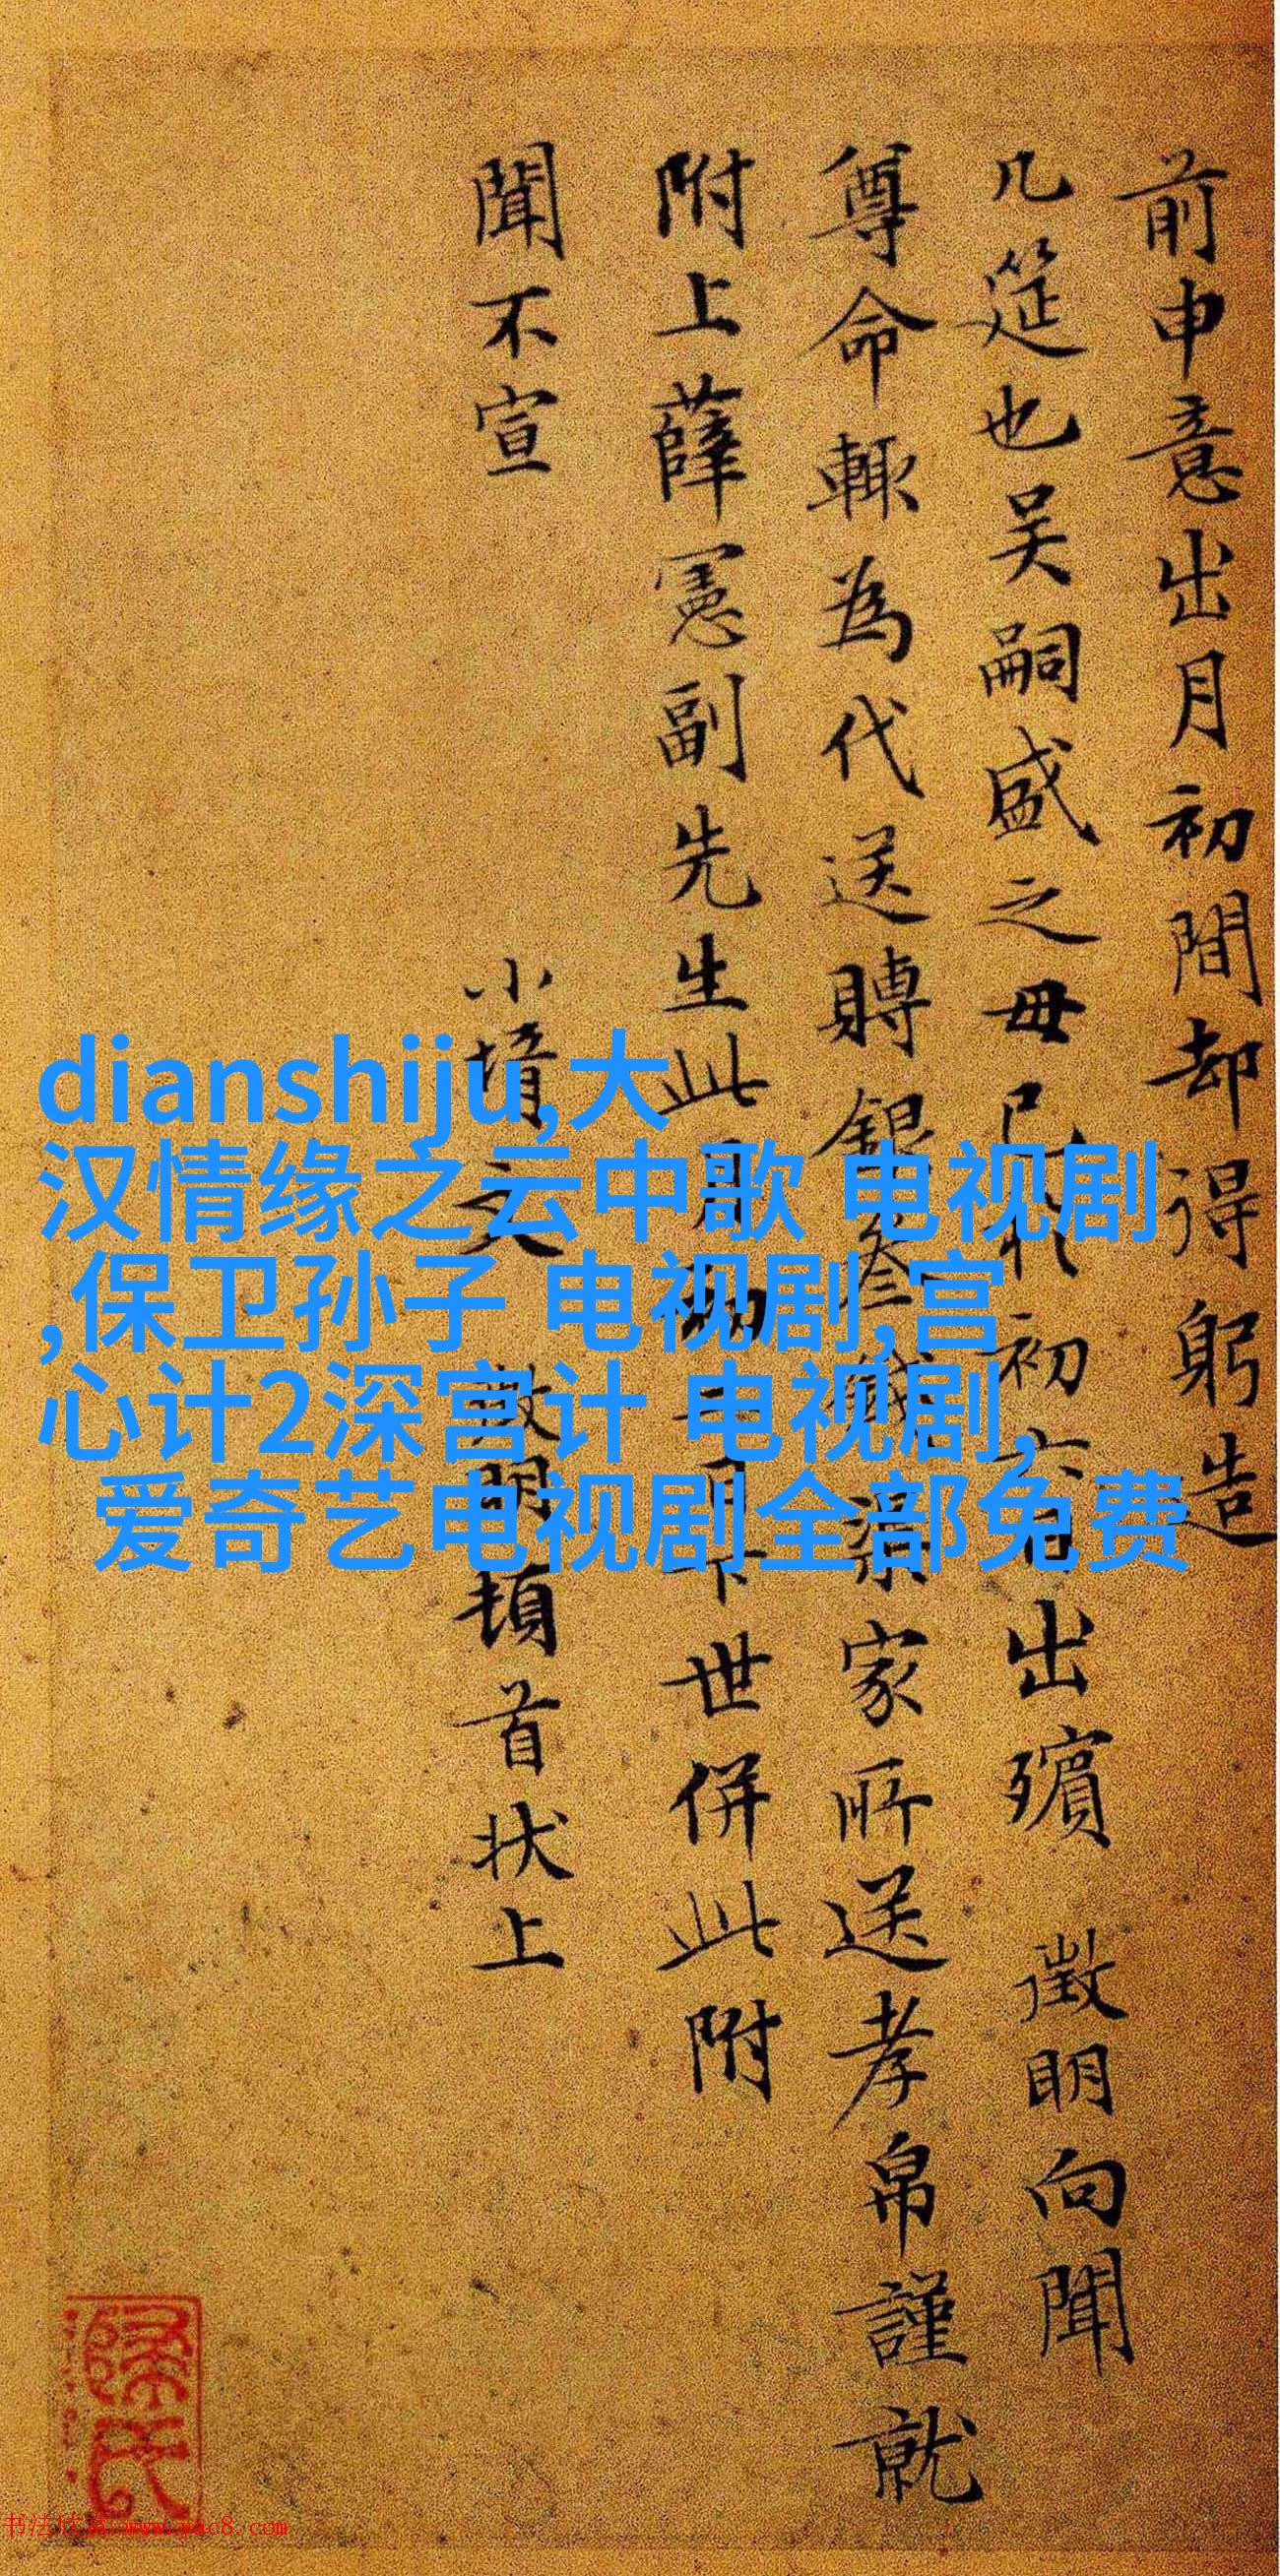 前申意出月初間却得躬造
几筵也吴嗣盛之母已
初六日出殯 徵明向聞
尊命輒為代送賻銀叁
家所送孝帛謹就
附上薛憲副先生此
世併此附
聞不宣
小壻文徵明頓首狀上
dianshiju,大
汉情缘之云中歌 电视剧
,保卫孙子 电视剧,宫
心计2深宫计 电视剧,
爱奇艺电视剧全部免费
书法欣赏 www.yac8.com